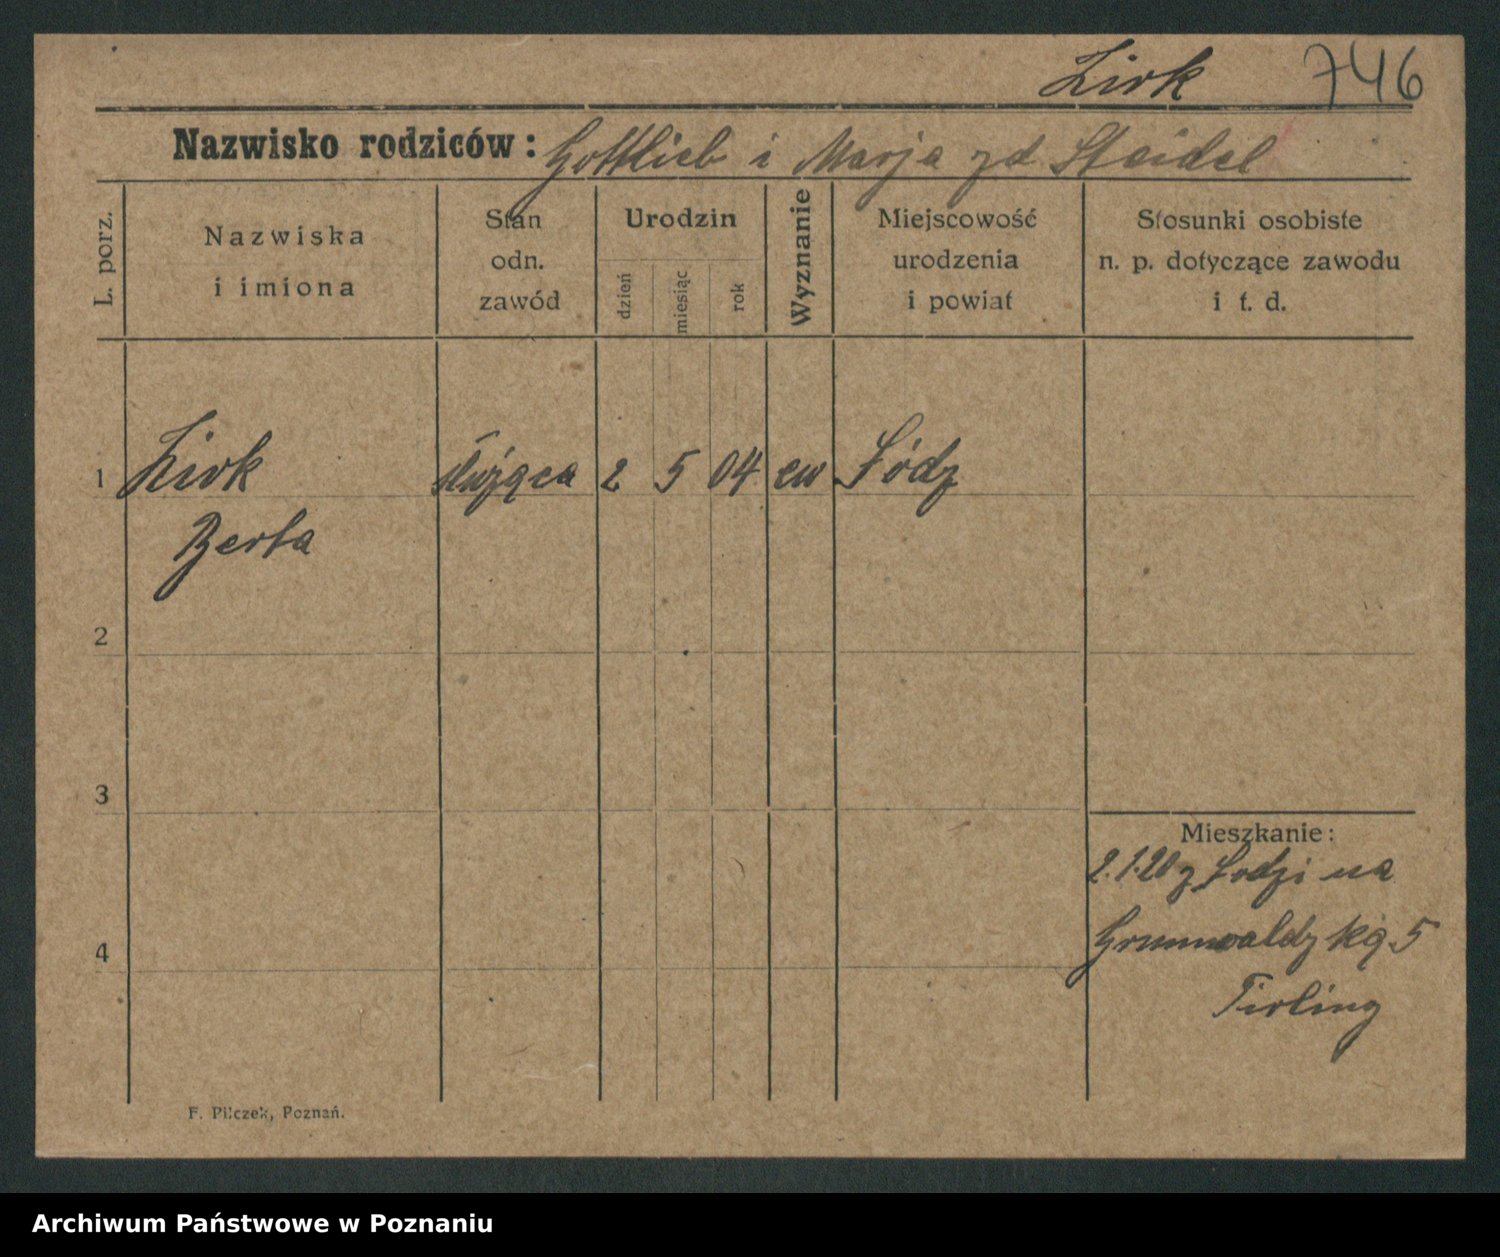 Zirk 746
Nazwisko rodziców: Gottlieb i Marja zd Steidel
L. porz.
Nazwiska
i imiona
Stan
odn.
zawód
Urodzin
dzień
miesiąc
rok
Wyznanie
Miejscowość
urodzenia
i powiat
Stosunki osobiste
n. p. dotyczące zawodu
i t. d.
1 Zirk służąca 2 5 04 ew Łódz
Berta
2
3
4
Mieszkanie:
2.1.20 z Łodzi na
Grunwaldz 5
Tirling
F. Pilczek, Poznań.
Archiwum Państwowe w Poznaniu